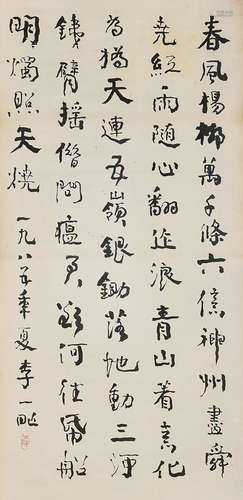 春風楊柳萬千條六億神州盡舜
堯紅雨隨心翻作浪青山着意化
為橋天連五嶺銀鋤落地動三河
銕臂摇借問瘟君欲何往帋船
明燭照天燒一九八年夏李一氓